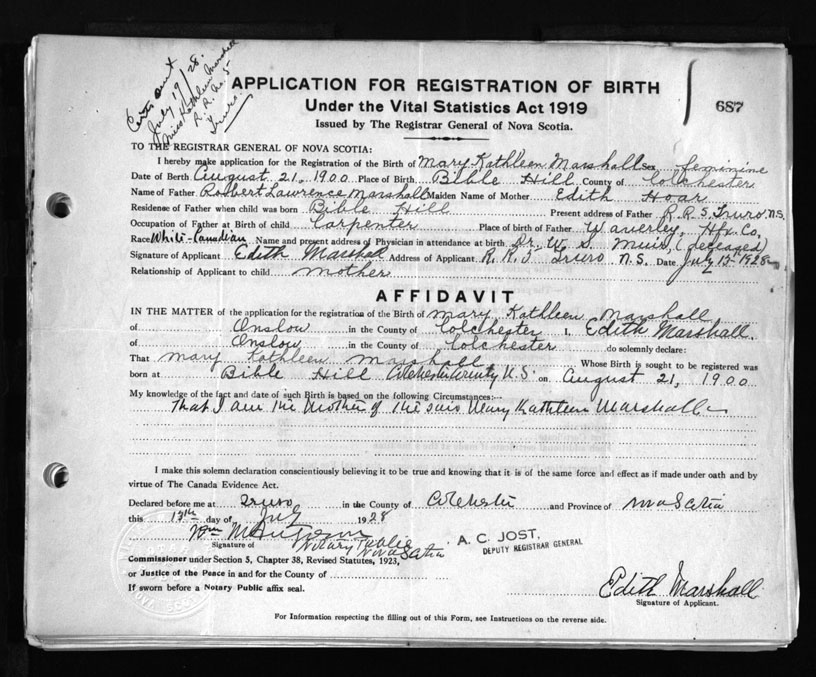 Cert. sent
July 19/28.
Miss Kathleen Marshall
R. R. No. 5
Truro.
APPLICATION FOR REGISTRATION OF BIRTH
Under the Vital Statistics Act 1919
Issued by The Registrar General of Nova Scotia.
687
TO THE REGISTRAR GENERAL OF NOVA SCOTIA:
I hereby make application for the Registration of the Birth of Mary Kathleen Marshall Sex feminine
Date of Birth August 21, 1900 Place of Birth Bible Hill County of Colchester
Name of Father Robert Lawrence Marshall Maiden Name of Mother Edith Hoar
Residence of Father when child was born Bible Hill Present address of Father R. R. 5 Truro N.S.
Occupation of Father at Birth of child Carpenter Place of birth of Father Waverley, Hfx. Co.
Race White-Canadian Name and present address of Physician in attendance at birth Dr. W. S. Muir, (deceased)
Signature of Applicant Edith Marshall Address of Applicant R. R. 5 Truro N.S. Date July 13th 1928
Relationship of Applicant to child mother
AFFIDAVIT
IN THE MATTER of the application for the registration of the Birth of Mary Kathleen Marshall
of Onslow in the County of Colchester I, Edith Marshall.
of Onslow in the County of Colchester do solemnly declare:
That Mary Kathleen Marshall Whose Birth is sought to be registered was
born at Bible Hill Colchester County N.S. on August 21, 1900
My knowledge of the fact and date of such Birth is based on the following Circumstances:—
That I am the Mother of the said Mary Kathleen Marshall
I make this solemn declaration conscientiously believing it to be true and knowing that it is of the same force and effect as if made under oath and by
virtue of The Canada Evidence Act.
Declared before me at Truro in the County of Colchester and Province of Nova Scotia
this 13th day of July 1928
Wm
Signature of Notary Public Nova Scotia
A. C. JOST,
DEPUTY REGISTRAR GENERAL
Commissioner under Section 5, Chapter 38, Revised Statutes, 1923,
or Justice of the Peace in and for the County of
If sworn before a Notary Public affix seal.
Edith Marshall
Signature of Applicant.
For Information respecting the filling out of this Form, see Instructions on the reverse side.